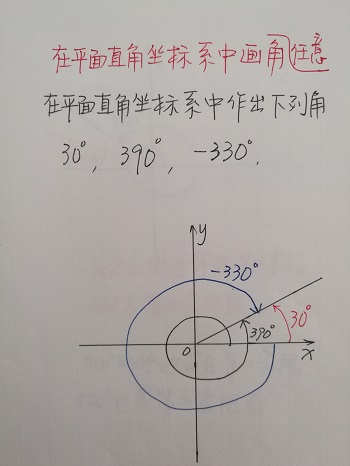 在平面直角坐标系中画角任意
在平面直角坐标系中作出下列角
30°, 390°, -330°.
y
-330°
30°
390°
0
x